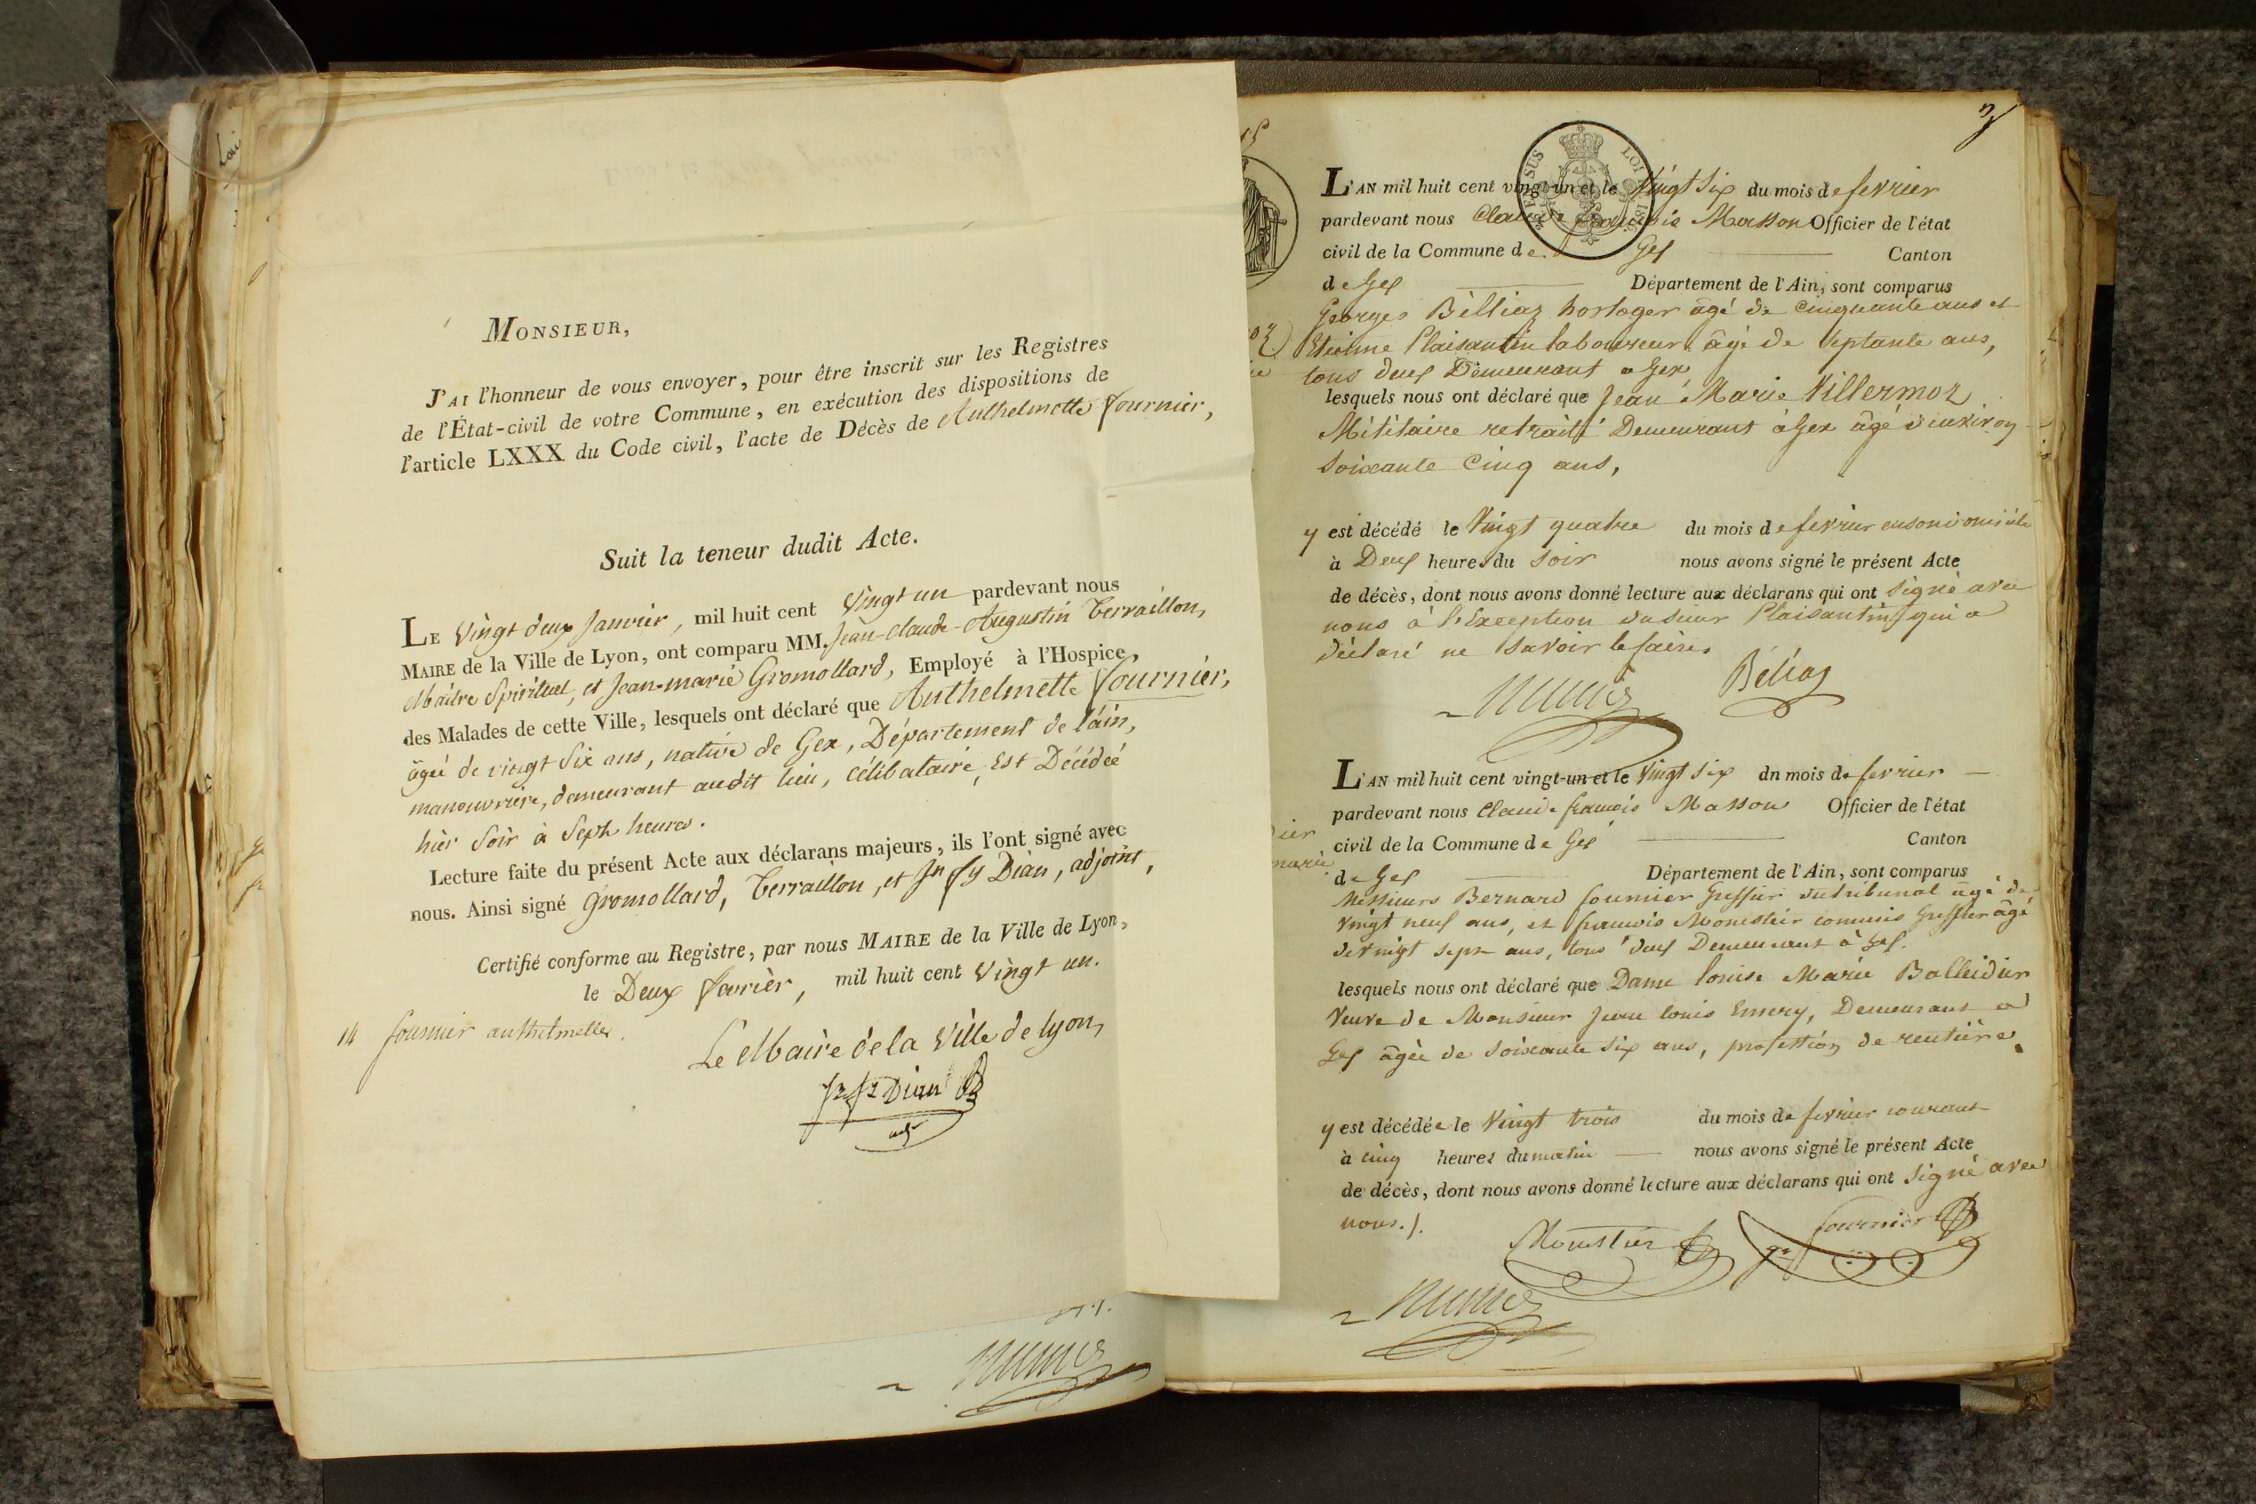 MONSIEUR,
J'AI l'honneur de vous envoyer, pour être inscrit sur les Registres
de l'État-civil de votre Commune, en exécution des dispositions de
l'article LXXX du Code civil, l'acte de Décès de Anthelmette fournier,
Suit la teneur dudit Acte.
LE Vingt deux Janvier, mil huit cent Vingt un pardevant nous
MAIRE de la Ville de Lyon, ont comparu MM. Jean-Claude-Augustin Terraillon,
Maître Spirituel, et Jean-marie Gromollard, Employé à l'Hospice
des Malades de cette Ville, lesquels ont déclaré que Anthelmette fournier,
âgée de vingt Six ans, native de Gex, Département de l'ain,
manouvrière, demeurant audit lieu, célibataire, Est Décédée
hier Soir à Sept heures.
Lecture faite du présent Acte aux déclarans majeurs, ils l'ont signé avec
nous. Ainsi signé Gromollard, Terraillon, et Jn fs Dian, adjoint,
Certifié conforme au Registre, par nous MAIRE de la Ville de Lyon,
le Deux février, mil huit cent vingt un.
14 fournier anthelmette.
Le Maire de la Ville de Lyon,
Dian
15
L'AN mil huit cent vingt-un et le Vingt Six du mois de fevrier
pardevant nous Claude francois Masson Officier de l'état
civil de la Commune de Gex Canton
de Gex Département de l'Ain, sont comparus
Georges Bélliaz horloger âgé de Cinquante ans et
Etienne Plaisantin laboureur âgé de septante ans,
tous deux Demeurant a Gex
lesquels nous ont déclaré que Jean Marie Villermoz
Militaire retraité Demeurant à Gex âgé d'environ
soixante Cinq ans,
y est décédé le Vingt quatre du mois de fevrier en son domicile
à Deux heures du soir nous avons signé le présent Acte
de décès, dont nous avons donné lecture aux déclarans qui ont signé avec
nous à l'Exception du sieur Plaisantin qui a
déclaré ne savoir le faire.
Béliaz
L'AN mil huit cent vingt-un et le Vingt Six dn mois de fevrier
pardevant nous Claude francois Masson Officier de l'état
civil de la Commune de Gex Canton
de Gex Département de l'Ain, sont comparus
Messieurs Bernard fournier Greffier du tribunal âgé de
vingt neuf ans, et francois Monestier commis Greffier âgé
de vingt sept ans, tous deux Demeurant à Gex.
lesquels nous ont déclaré que Dame louise Marie Balleidier
Veuve de Monsieur Jean louis Emery, Demeurant a
Gex âgée de soixante six ans, profession de rentière.
y est décédée le Vingt trois du mois de fevrier courant
à cinq heures du matin nous avons signé le présent Acte
de décès, dont nous avons donné lecture aux déclarans qui ont signé avec
nous./.
Monestier fournier